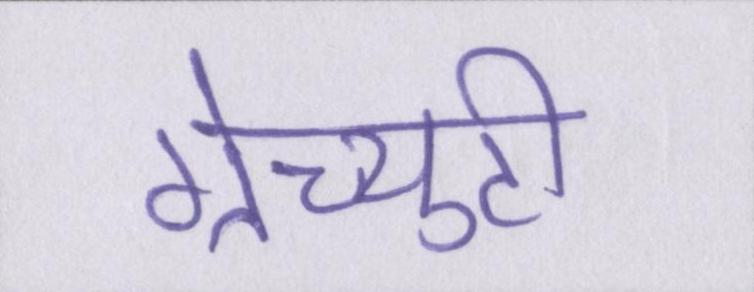 ग्रेच्युटी